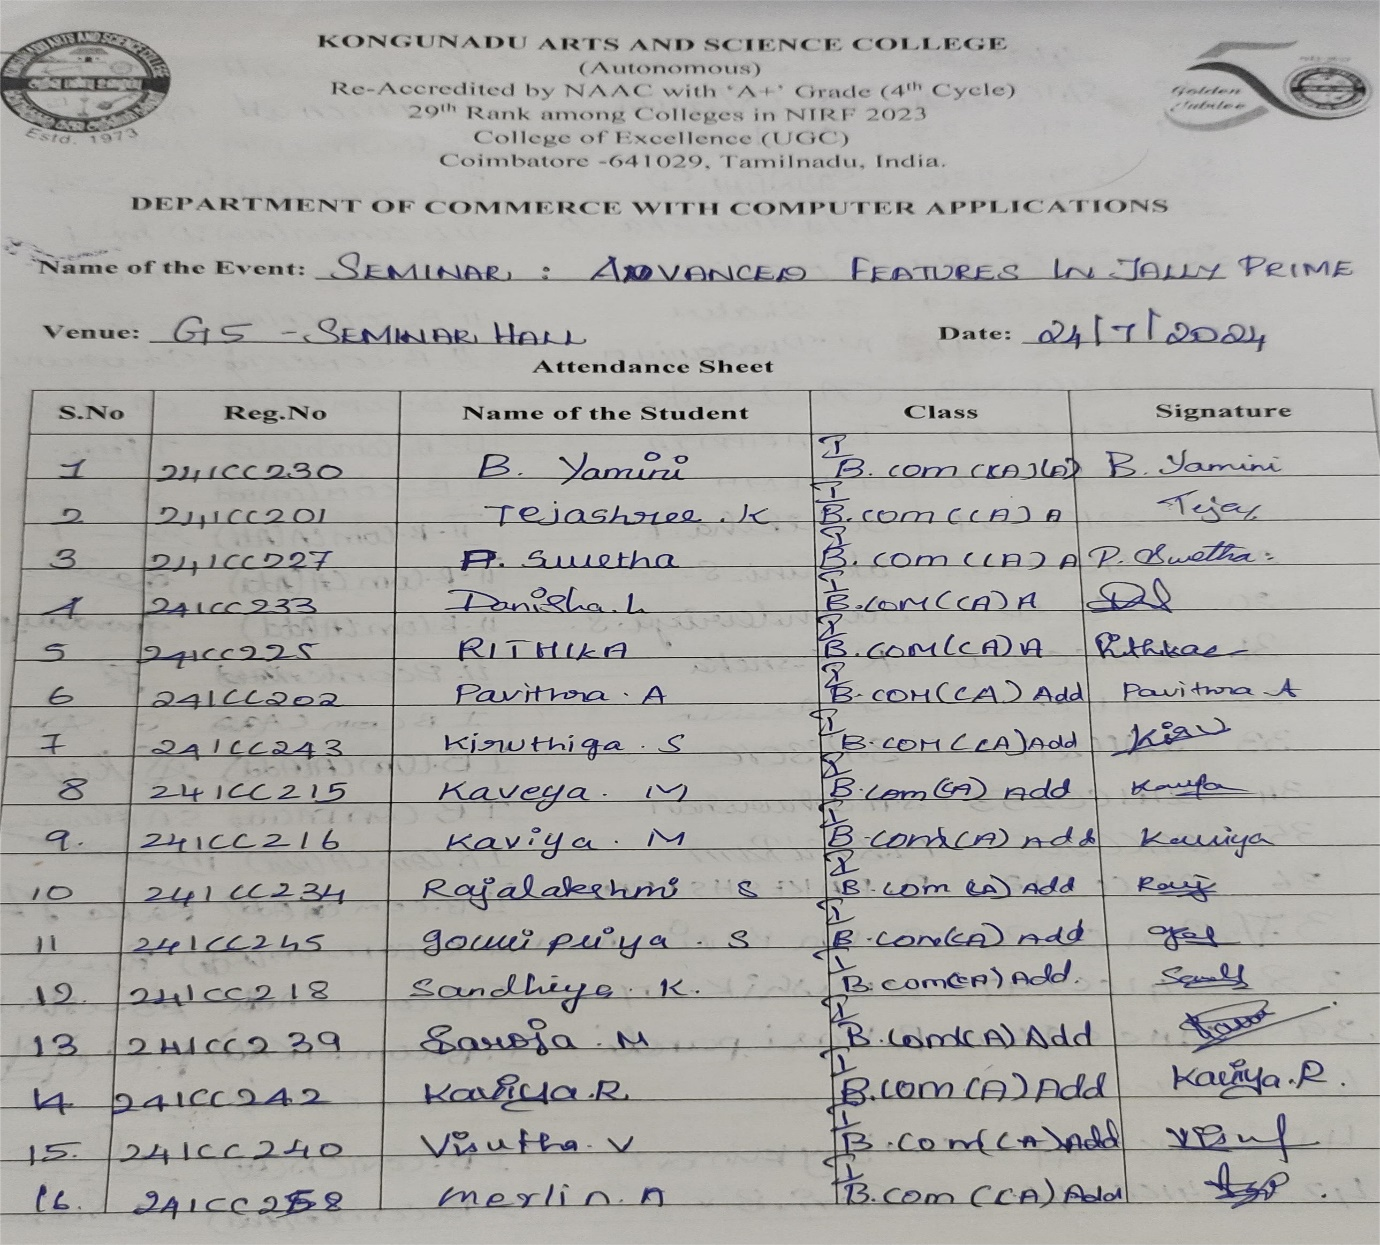 KONGUNADU ARTS AND SCIENCE COLLEGE
(Autonomous)
Re-Accredited by NAAC with 'A+' Grade (4th Cycle)
29th Rank among Colleges in NIRF 2023
College of Excellence (UGC)
Coimbatore -641029, Tamilnadu, India.
Estd. 1973
Golden
Jubilee
DEPARTMENT OF COMMERCE WITH COMPUTER APPLICATIONS
Name of the Event: SEMINAR : ADVANCED FEATURES IN TALLY PRIME
Venue: G15 - SEMINAR HALL Date: 24/7/2024
Attendance Sheet
S.No Reg.No Name of the Student Class Signature
1 241CC230 B. Yamini I B.com (CA) (A) B. Yamini
2 241CC201 Tejashree .K I B.com (CA) A Teja
3 241CC227 P. Swetha I B. com (CA) A P. Swetha
4 241CC233 Danisha.L I B.COM (CA) A
5 241CC225 RITHIKA I B.COM(CA) A Rithika
6 241CC202 Pavithra . A I B.COM (CA) Add Pavithra A
7 241CC243 Kiruthiga . S I B.COM (CA) Add
8 241CC215 Kaveya. M I B.com (CA) Add Kaveya
9. 241CC216 Kaviya. M I B.com (CA) Add Kaviya
10 241CC234 Rajalakshmi S I B.com (CA) Add
11 241CC245 gowri priya . S I B.com(CA) Add
12. 241CC218 Sandhiya. K. I B.com(CA) Add.
13 241CC239 Saroja . M I B.com(CA) Add
14 241CC242 Kaviya.R. I B.com (CA) Add Kaviya.R.
15. 241CC240 Visutha. V I B.com (CA) Add
16. 241CC258 Merlin. A I B.com (CA) Add